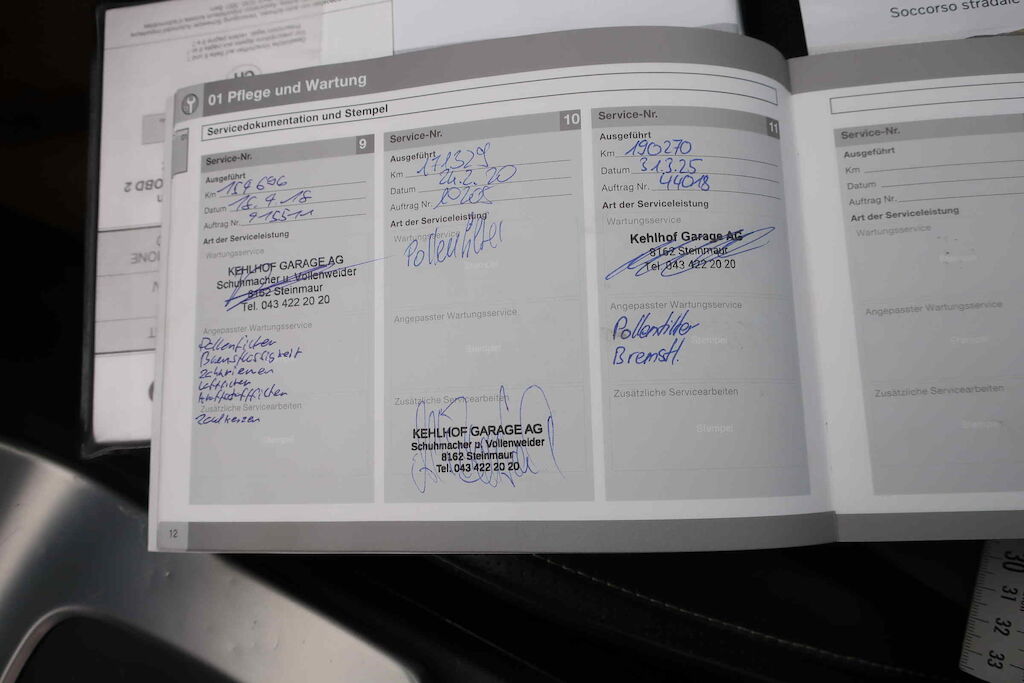 Soccorso stradale
OBD 2
01 Pflege und Wartung
Servicedokumentation und Stempel
Service-Nr. 9
Ausgeführt
Km 159696
Datum 18.9.18
Auftrag Nr.
Art der Serviceleistung
Wartungsservice
KEHLHOF GARAGE AG
Schuhmacher u. Vollenweider
8162 Steinmaur
Tel. 043 422 20 20
Angepasster Wartungsservice
Pollenfilter
Bremsflüssigkeit
Luftfilter
Kraftstofffilter
Zusätzliche Servicearbeiten
Zündkerzen
Stempel
Service-Nr. 10
Ausgeführt
Km 171329
Datum 24.2.20
Auftrag Nr. 10265
Art der Serviceleistung
Wartungsservice
Pollenfilter
Stempel
Angepasster Wartungsservice
Stempel
Zusätzliche Servicearbeiten
KEHLHOF GARAGE AG
Schuhmacher u. Vollenweider
8162 Steinmaur
Tel. 043 422 20 20
Service-Nr. 11
Ausgeführt
Km 190270
Datum 31.3.25
Auftrag Nr. 44018
Art der Serviceleistung
Wartungsservice
Kehlhof Garage AG
8162 Steinmaur
Tel. 043 422 20 20
Angepasster Wartungsservice
Pollenfilter
Bremsfl.
Stempel
Zusätzliche Servicearbeiten
Stempel
Service-Nr.
Ausgeführt
Km
Datum
Auftrag Nr.
Art der Serviceleistung
Wartungsservice
Angepasster Wartungsservice
Stempel
Zusätzliche Servicearbeiten
Stempel
12
30
31
32
33